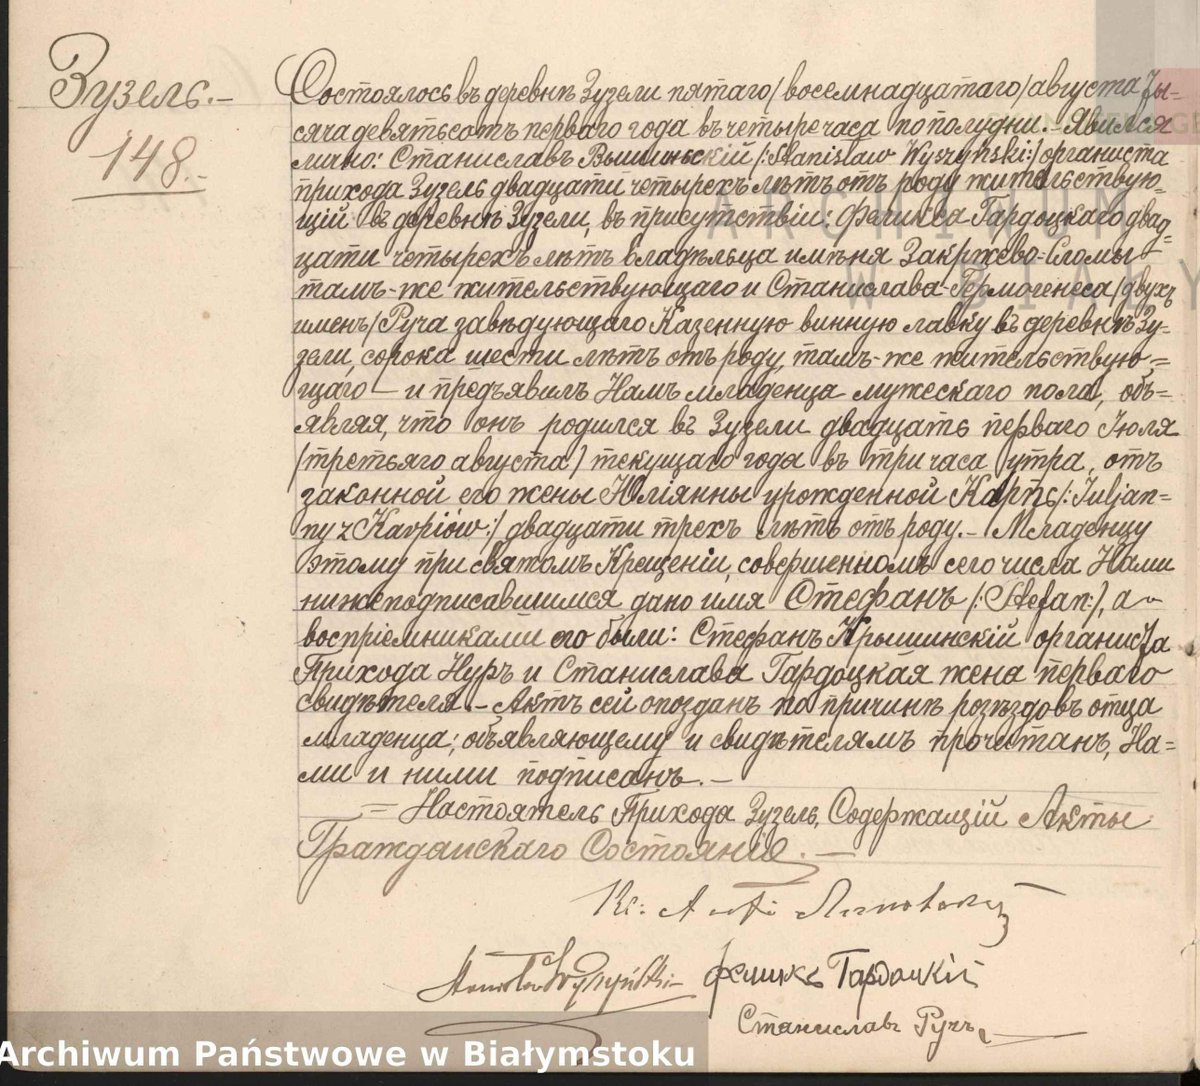 Зузель.-
148.-
Состоялось въ деревнѣ Зузели пятаго /восемнадцатаго/ августа Ты-
сяча девятьсотъ перваго года въ четыре часа пополудни. - Явился
лично: Станиславъ Вышиньскій /:Stanisław Wyszyński:/ органиста
прихода Зузель двадцати четырехъ лѣтъ отъ роду жительствую-
щій въ деревнѣ Зузели, въ присутствіи: Феликса Гардоцкаго двад-
цати четырехъ лѣтъ владѣльца имѣня Закржево-Сломы
тамъ-же жительствующаго и Станислава-Гермогенеса /двухъ
именъ/ Руча завѣдующаго Казенную винную лавку въ деревнѣ Зу-
зели, сорока шести лѣтъ отъ роду, тамъ-же жительствую-
щаго - и предъявилъ Намъ младенца мужескаго пола, объ-
являя, что онъ родился въ Зузели двадцать перваго Іюля
/третьяго августа/ текущаго года въ три часа утра, отъ
законной его жены Юліянны урожденной Карпь /:Juljan-
ny z Karpiów:/ двадцати трехъ лѣтъ отъ роду. - Младенцу
этому при святомъ Крещеніи, совершенномъ сего числа Нами
нижеподписавшимся дано имя Стефанъ /:Stefan:/, а
воспріемниками его были: Стефанъ Крышинскій органиста
Прихода Нуръ и Станислава Гардоцкая жена перваго
свидѣтеля. - Актъ сей опозданъ по причинѣ розѣздовъ отца
младенца; объявляющему и свидѣтелямъ прочитанъ, На-
ми и ними подписанъ. -
= Настоятель Прихода Зузель, Содержащій Акты
Гражданскаго Состоянія. -
Кс:
Stanisław Wyszyński Феликсъ Гардоцкій
Станиславъ Ручъ
ARCHIWUM
W BIAŁY
Archiwum Państwowe w Białymstoku